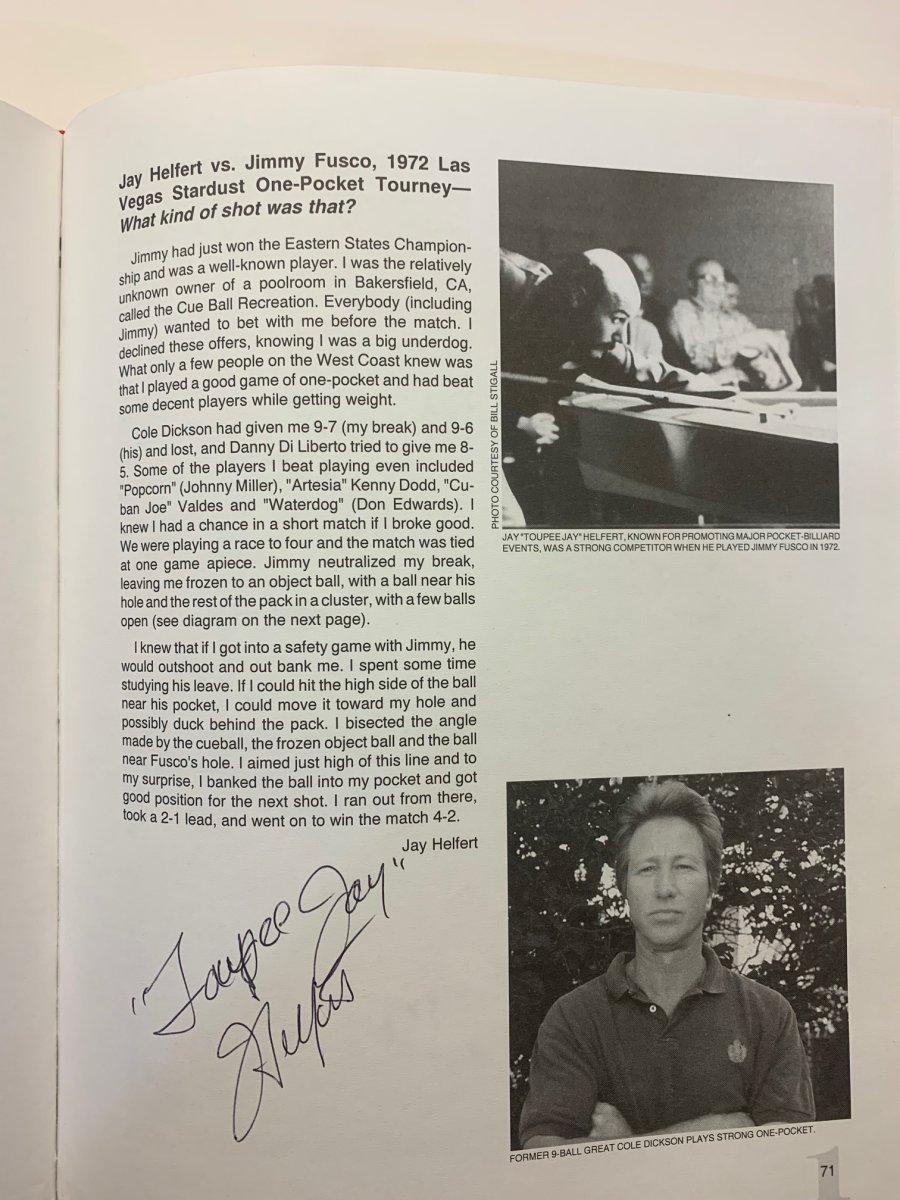 Jay Helfert vs. Jimmy Fusco, 1972 Las
Vegas Stardust One-Pocket Tourney—
What kind of shot was that?
Jimmy had just won the Eastern States Champion-
ship and was a well-known player. I was the relatively
unknown owner of a poolroom in Bakersfield, CA,
called the Cue Ball Recreation. Everybody (including
Jimmy) wanted to bet with me before the match. I
declined these offers, knowing I was a big underdog.
What only a few people on the West Coast knew was
that I played a good game of one-pocket and had beat
some decent players while getting weight.
Cole Dickson had given me 9-7 (my break) and 9-6
(his) and lost, and Danny Di Liberto tried to give me 8-
5. Some of the players I beat playing even included
"Popcorn" (Johnny Miller), "Artesia" Kenny Dodd, "Cu-
ban Joe" Valdes and "Waterdog" (Don Edwards). I
knew I had a chance in a short match if I broke good.
We were playing a race to four and the match was tied
at one game apiece. Jimmy neutralized my break,
leaving me frozen to an object ball, with a ball near his
hole and the rest of the pack in a cluster, with a few balls
open (see diagram on the next page).
I knew that if I got into a safety game with Jimmy, he
would outshoot and out bank me. I spent some time
studying his leave. If I could hit the high side of the ball
near his pocket, I could move it toward my hole and
possibly duck behind the pack. I bisected the angle
made by the cueball, the frozen object ball and the ball
near Fusco's hole. I aimed just high of this line and to
my surprise, I banked the ball into my pocket and got
good position for the next shot. I ran out from there,
took a 2-1 lead, and went on to win the match 4-2.
Jay Helfert
"Toupee Jay"
Helfert
PHOTO COURTESY OF BILL STIGALL
JAY "TOUPEE JAY" HELFERT, KNOWN FOR PROMOTING MAJOR POCKET-BILLIARD
EVENTS, WAS A STRONG COMPETITOR WHEN HE PLAYED JIMMY FUSCO IN 1972.
FORMER 9-BALL GREAT COLE DICKSON PLAYS STRONG ONE-POCKET.
1
71